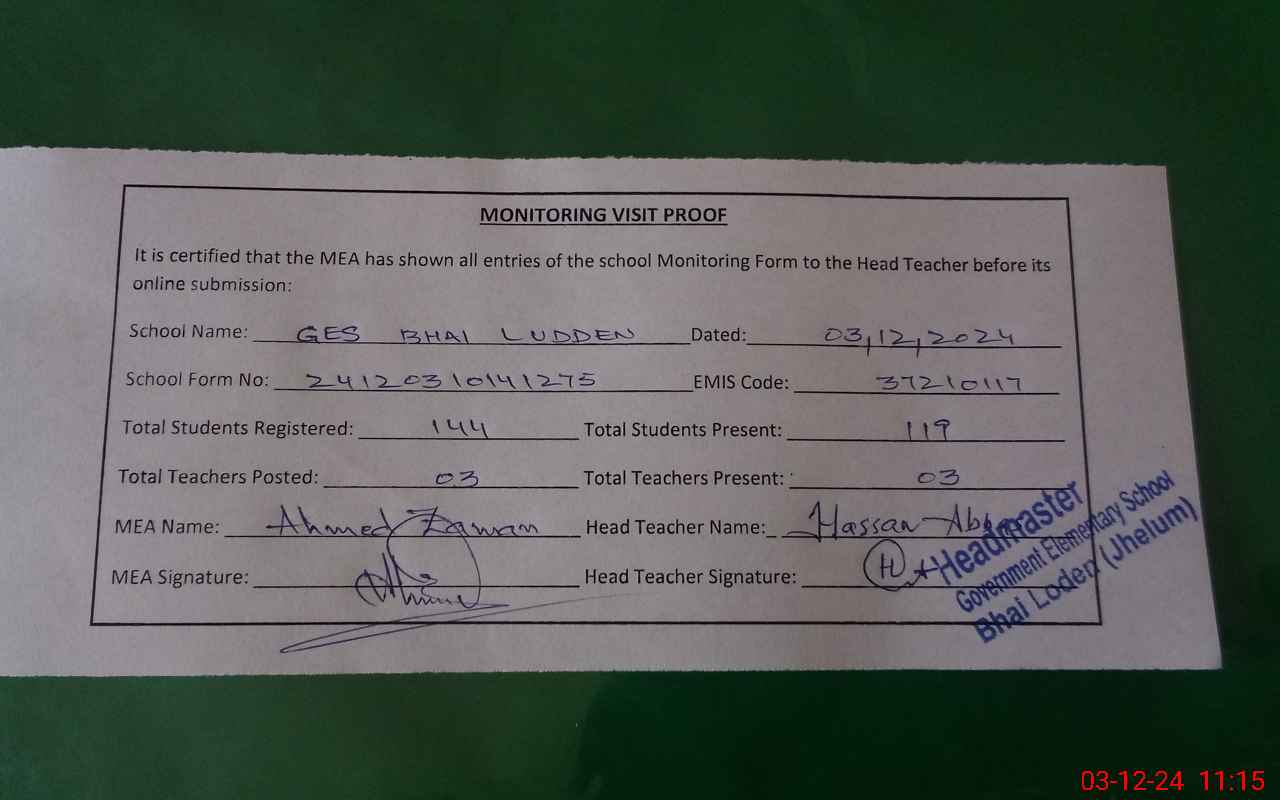 MONITORING VISIT PROOF
It is certified that the MEA has shown all entries of the school Monitoring Form to the Head Teacher before its
online submission:
School Name: GES BHAI LUDDEN Dated: 03,12,2024
School Form No: 24120310141275 EMIS Code: 37210117
Total Students Registered: 144 Total Students Present: 119
Total Teachers Posted: 03 Total Teachers Present: 03
MEA Name: Ahmed Head Teacher Name: Hassan
MEA Signature: Head Teacher Signature:
Headmaster
Government Elementary School
Bhai Loden (Jhelum)
03-12-24 11:15